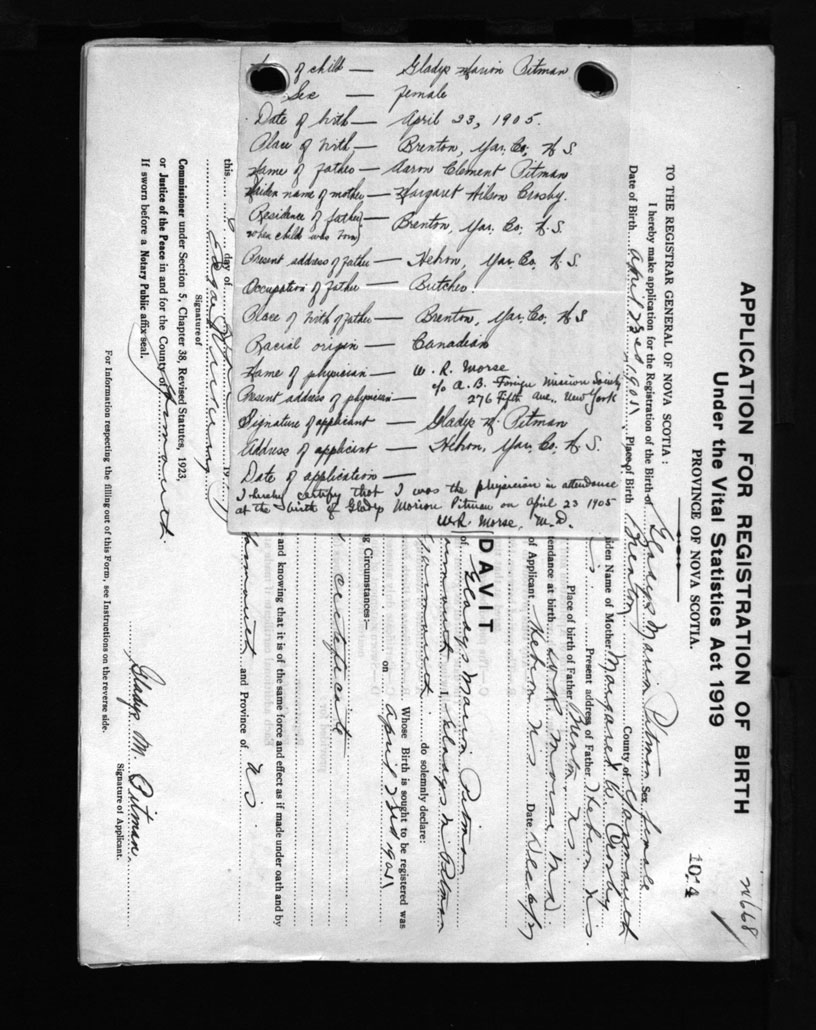 of child — Gladys Marion Pitman
Sex — female
Date of birth — April 23, 1905.
Place of birth — Brenton, Yar. Co. N.S.
Name of father — Aaron Clement Pitman
Maiden name of mother — Margaret Crosby.
Residence of father — Brenton, Yar. Co. N.S.
(when child was born)
Present address of father — Hebron, Yar. Co. N.S.
Occupation of father — Butcher
Place of birth of father — Brenton, Yar. Co. N.S
Racial origin — Canadian
Name of physician — W. R. Morse
c/o A. B. Foreign Mission Society
Present address of physician — 276 Fifth Ave., New York
Signature of applicant — Gladys M. Pitman
Address of applicant — Hebron, Yar. Co. N.S.
Date of application —
I hereby certify that I was the physician in attendance
at the birth of Gladys Marion Pitman on April 23 1905
W.R. Morse, M.D.
668
10:4
APPLICATION FOR REGISTRATION OF BIRTH
Under the Vital Statistics Act 1919
PROVINCE OF NOVA SCOTIA.
TO THE REGISTRAR GENERAL OF NOVA SCOTIA:
I hereby make application for the Registration of the Birth of Gladys Marion Pitman Sex female
Date of Birth April 23rd Place of Birth Brenton County of Yarmouth
Maiden Name of Mother Margaret Crosby
Present address of Father Hebron N.S.
Place of birth of Father Brenton NS
attendance at birth W R Morse M.D.
of Applicant Hebron NS Date Dec
DAVIT
of Gladys Marion Pitman
I, Gladys M Pitman
Yarmouth do solemnly declare:
Whose Birth is sought to be registered was
on April 23rd
Circumstances:—
certificate
and knowing that it is of the same force and effect as if made under oath and by
and Province of NS
this day of 19
Signature of
Commissioner under Section 5, Chapter 38, Revised Statutes, 1923,
or Justice of the Peace in and for the County of Yarmouth.
If sworn before a Notary Public affix seal.
Gladys M. Pitman
Signature of Applicant.
For Information respecting the filling out of this Form, see Instructions on the reverse side.